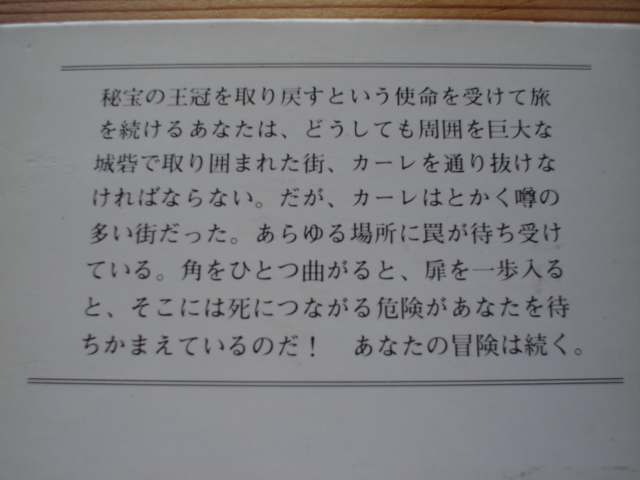 秘宝の王冠を取り戻すという使命を受けて旅
を続けるあなたは、どうしても周囲を巨大な
城砦で取り囲まれた街、カーレを通り抜けな
ければならない。だが、カーレはとかく噂の
多い街だった。あらゆる場所に罠が待ち受け
ている。角をひとつ曲がると、扉を一歩入る
と、そこには死につながる危険があなたを待
ちかまえているのだ！　あなたの冒険は続く。